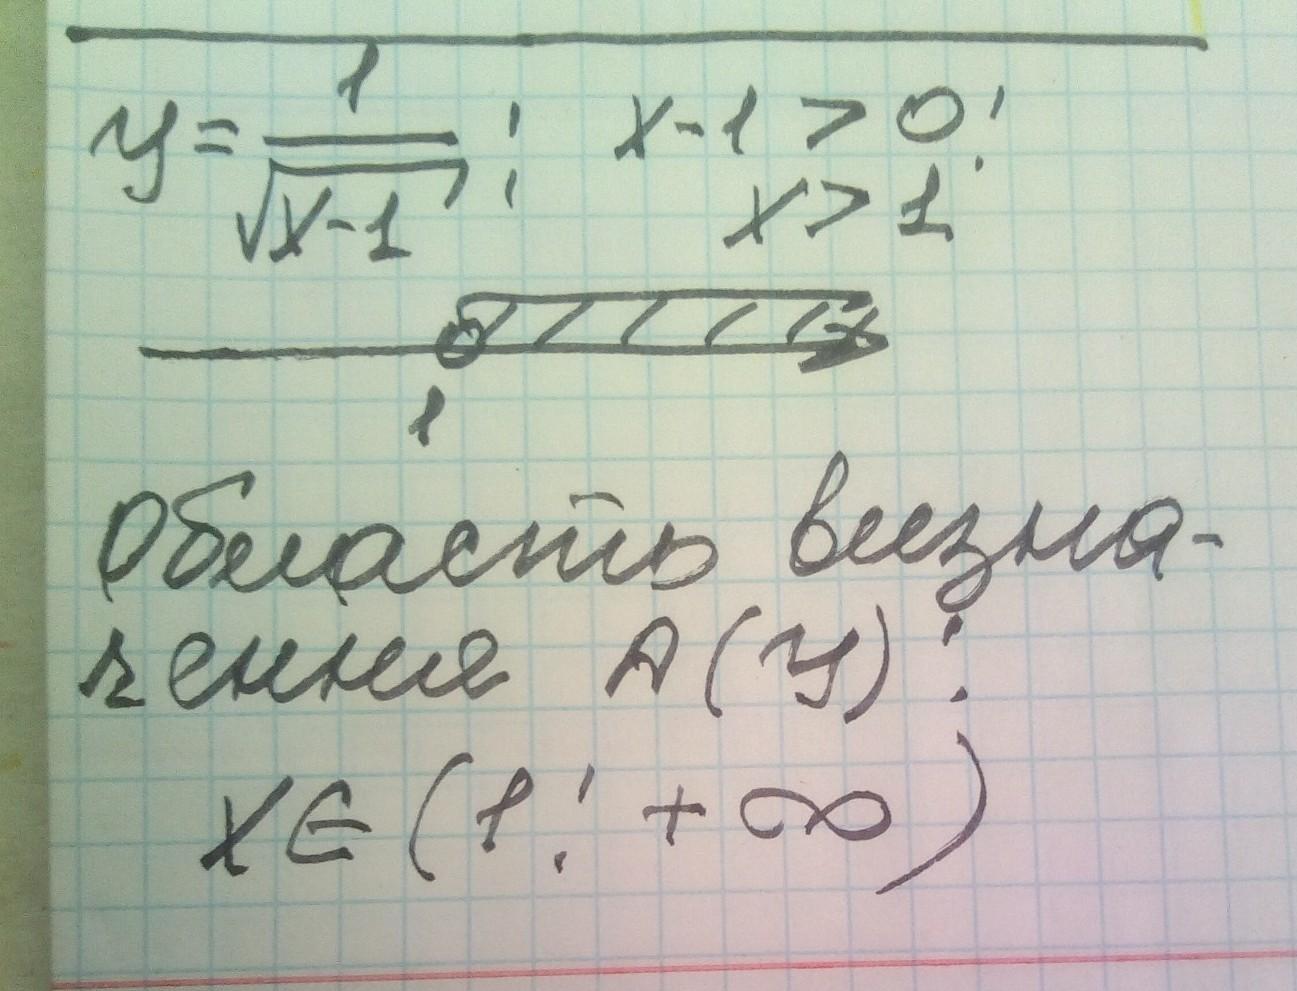 y = 1/√(x-1) ; x-1 > 0;
x > 1
1
Область визна-
чення D(y):
x ∈ (1; +∞)